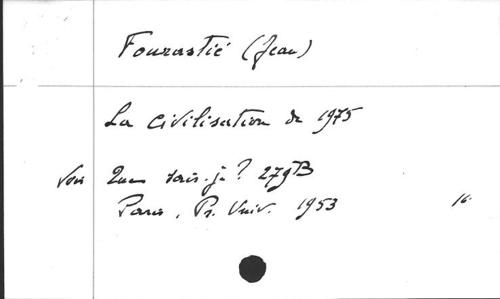 Fourastié (Jean)
La civilisation de 1975
Voir Que sais-je? 279B
Paris, Pr. Univ. 1953 16.